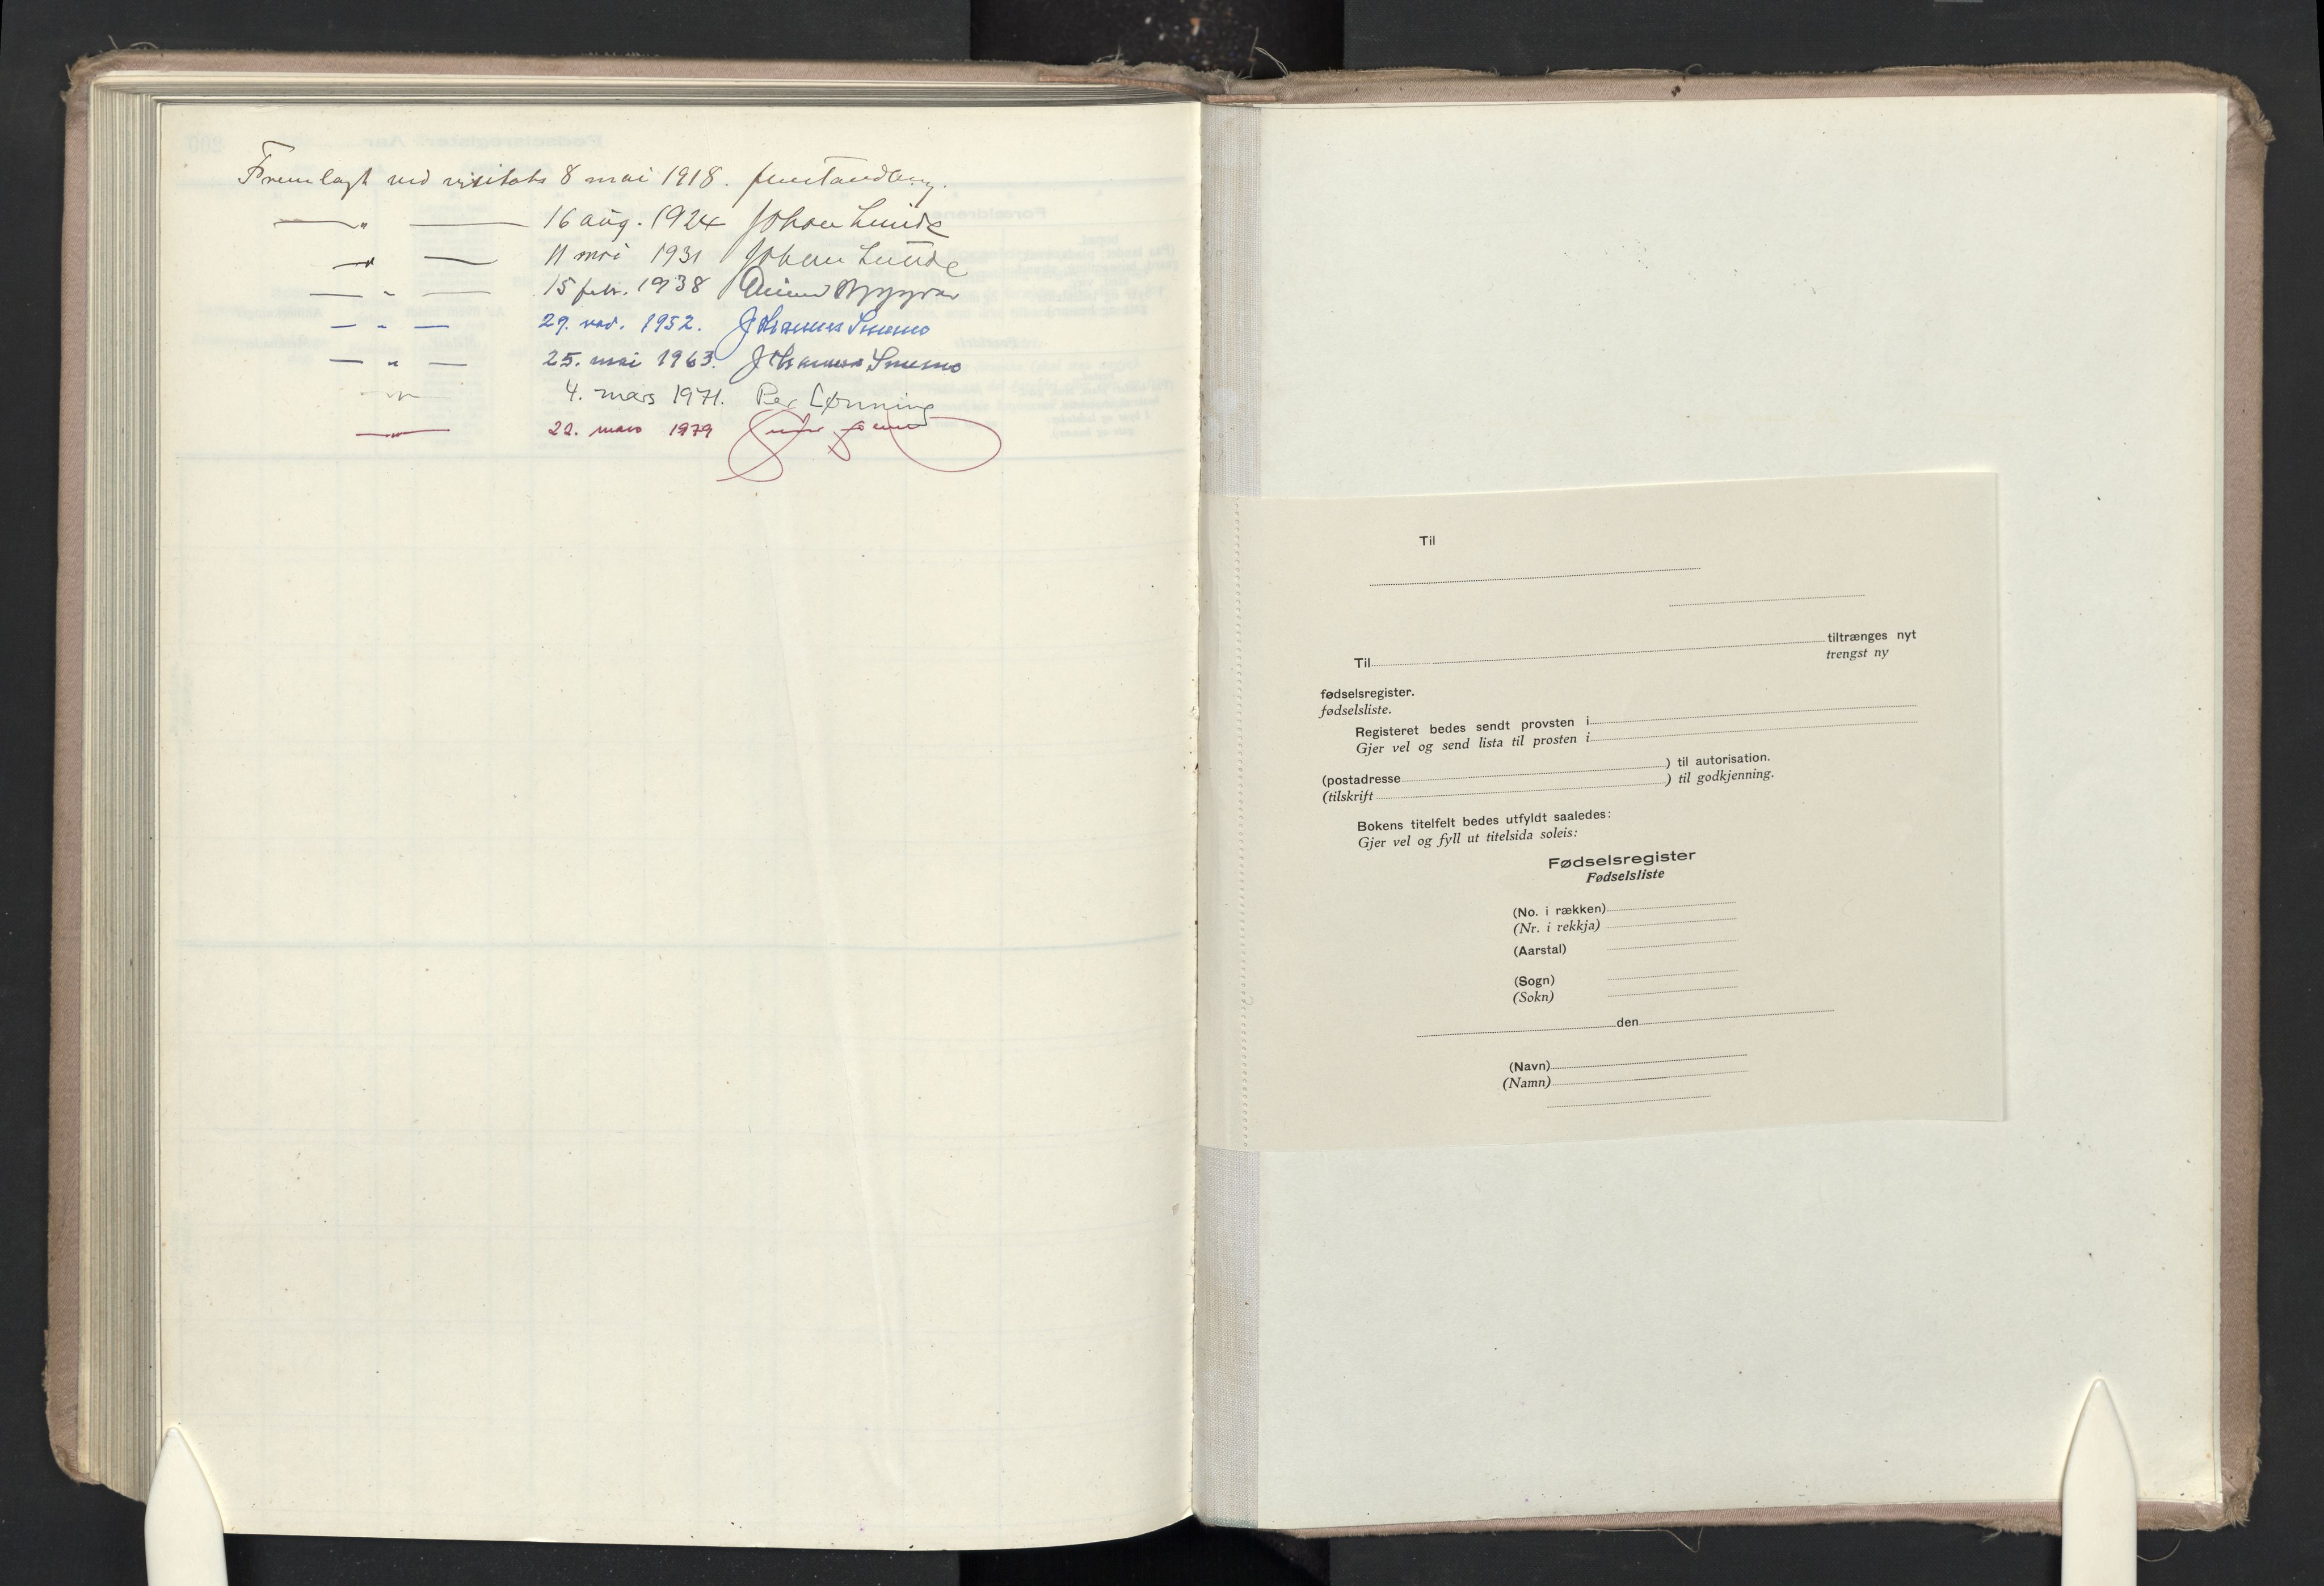 Fremlagt ved visitats 8 mai 1918. Jens Tandberg.
— " — 16 aug. 1924 Johan Lunde
— " — 11 mai 1931 Johan Lunde
— " — 15 febr. 1938
— " — 29. nov. 1952. Johannes Smemo
— " — 25. mai 1963. Johannes Smemo
— " — 4. mars 1971. Per Lønning
— " — 22. mars 1979
Til
Til tiltrænges nyt
trengst ny
fødselsregister.
fødselsliste.
Registeret bedes sendt provsten i
Gjer vel og send lista til prosten i
(postadresse ) til autorisation.
(tilskrift ) til godkjenning.
Bokens titelfelt bedes utfyldt saaledes:
Gjer vel og fyll ut titelsida soleis:
Fødselsregister
Fødselsliste
(No. i rækken)
(Nr. i rekkja)
(Aarstal)
(Sogn)
(Sokn)
den
(Navn)
(Namn)